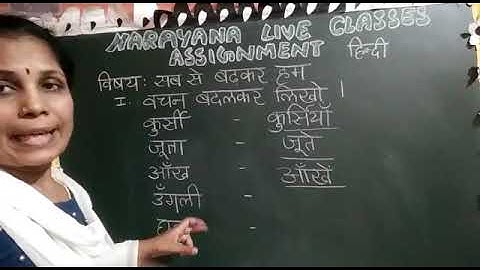 NARAYANA LIVE CLASSES
ASSIGNMENT हिन्दी
विषय: सब से बढकर हम
I. वचन बदलकर लिखो ।
कुर्सी - कुर्सियाँ
जूता - जूते
आँख - आँखें
उँगली -
-